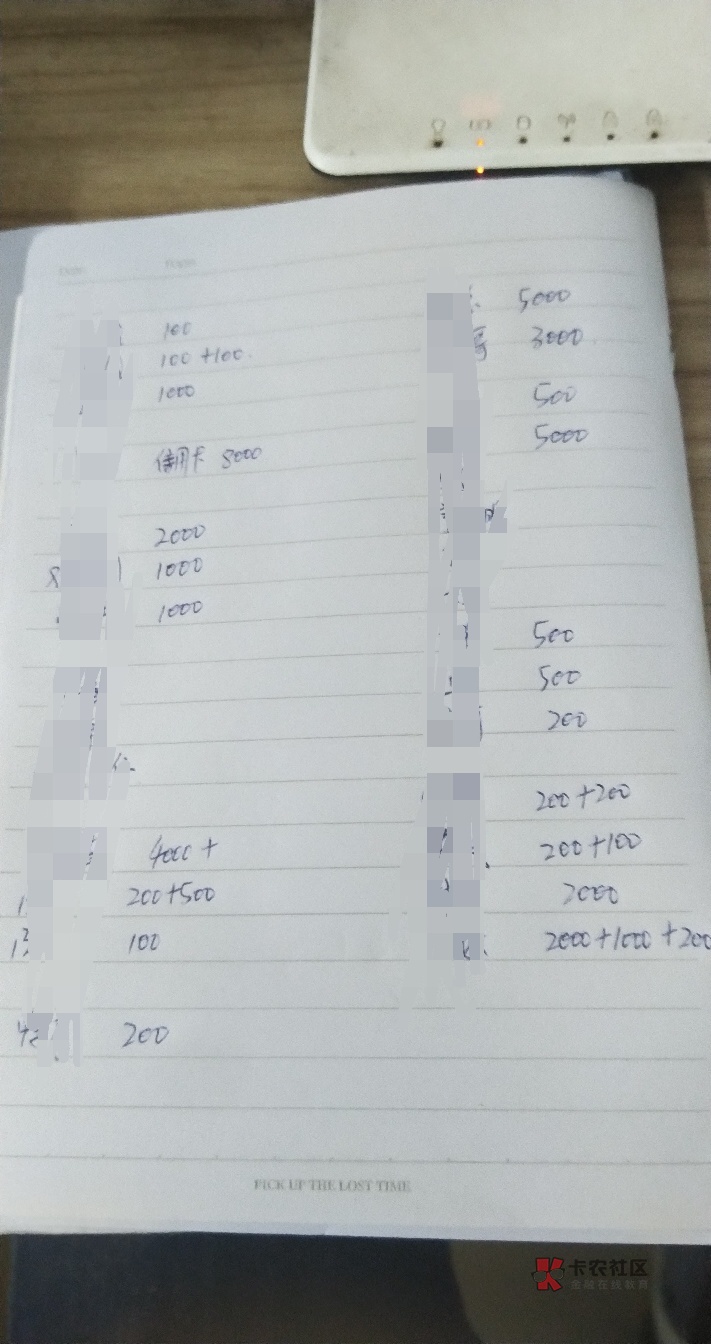 100
100 +100
1000
信用卡 8000
2000
1000
1000
4000 +
200+500
100
200
5000
3000
500
5000
500
500
200
200+200
200+100
2000+1000 +200
PICK UP THE LOST TIME
卡农社区
金融在线教育